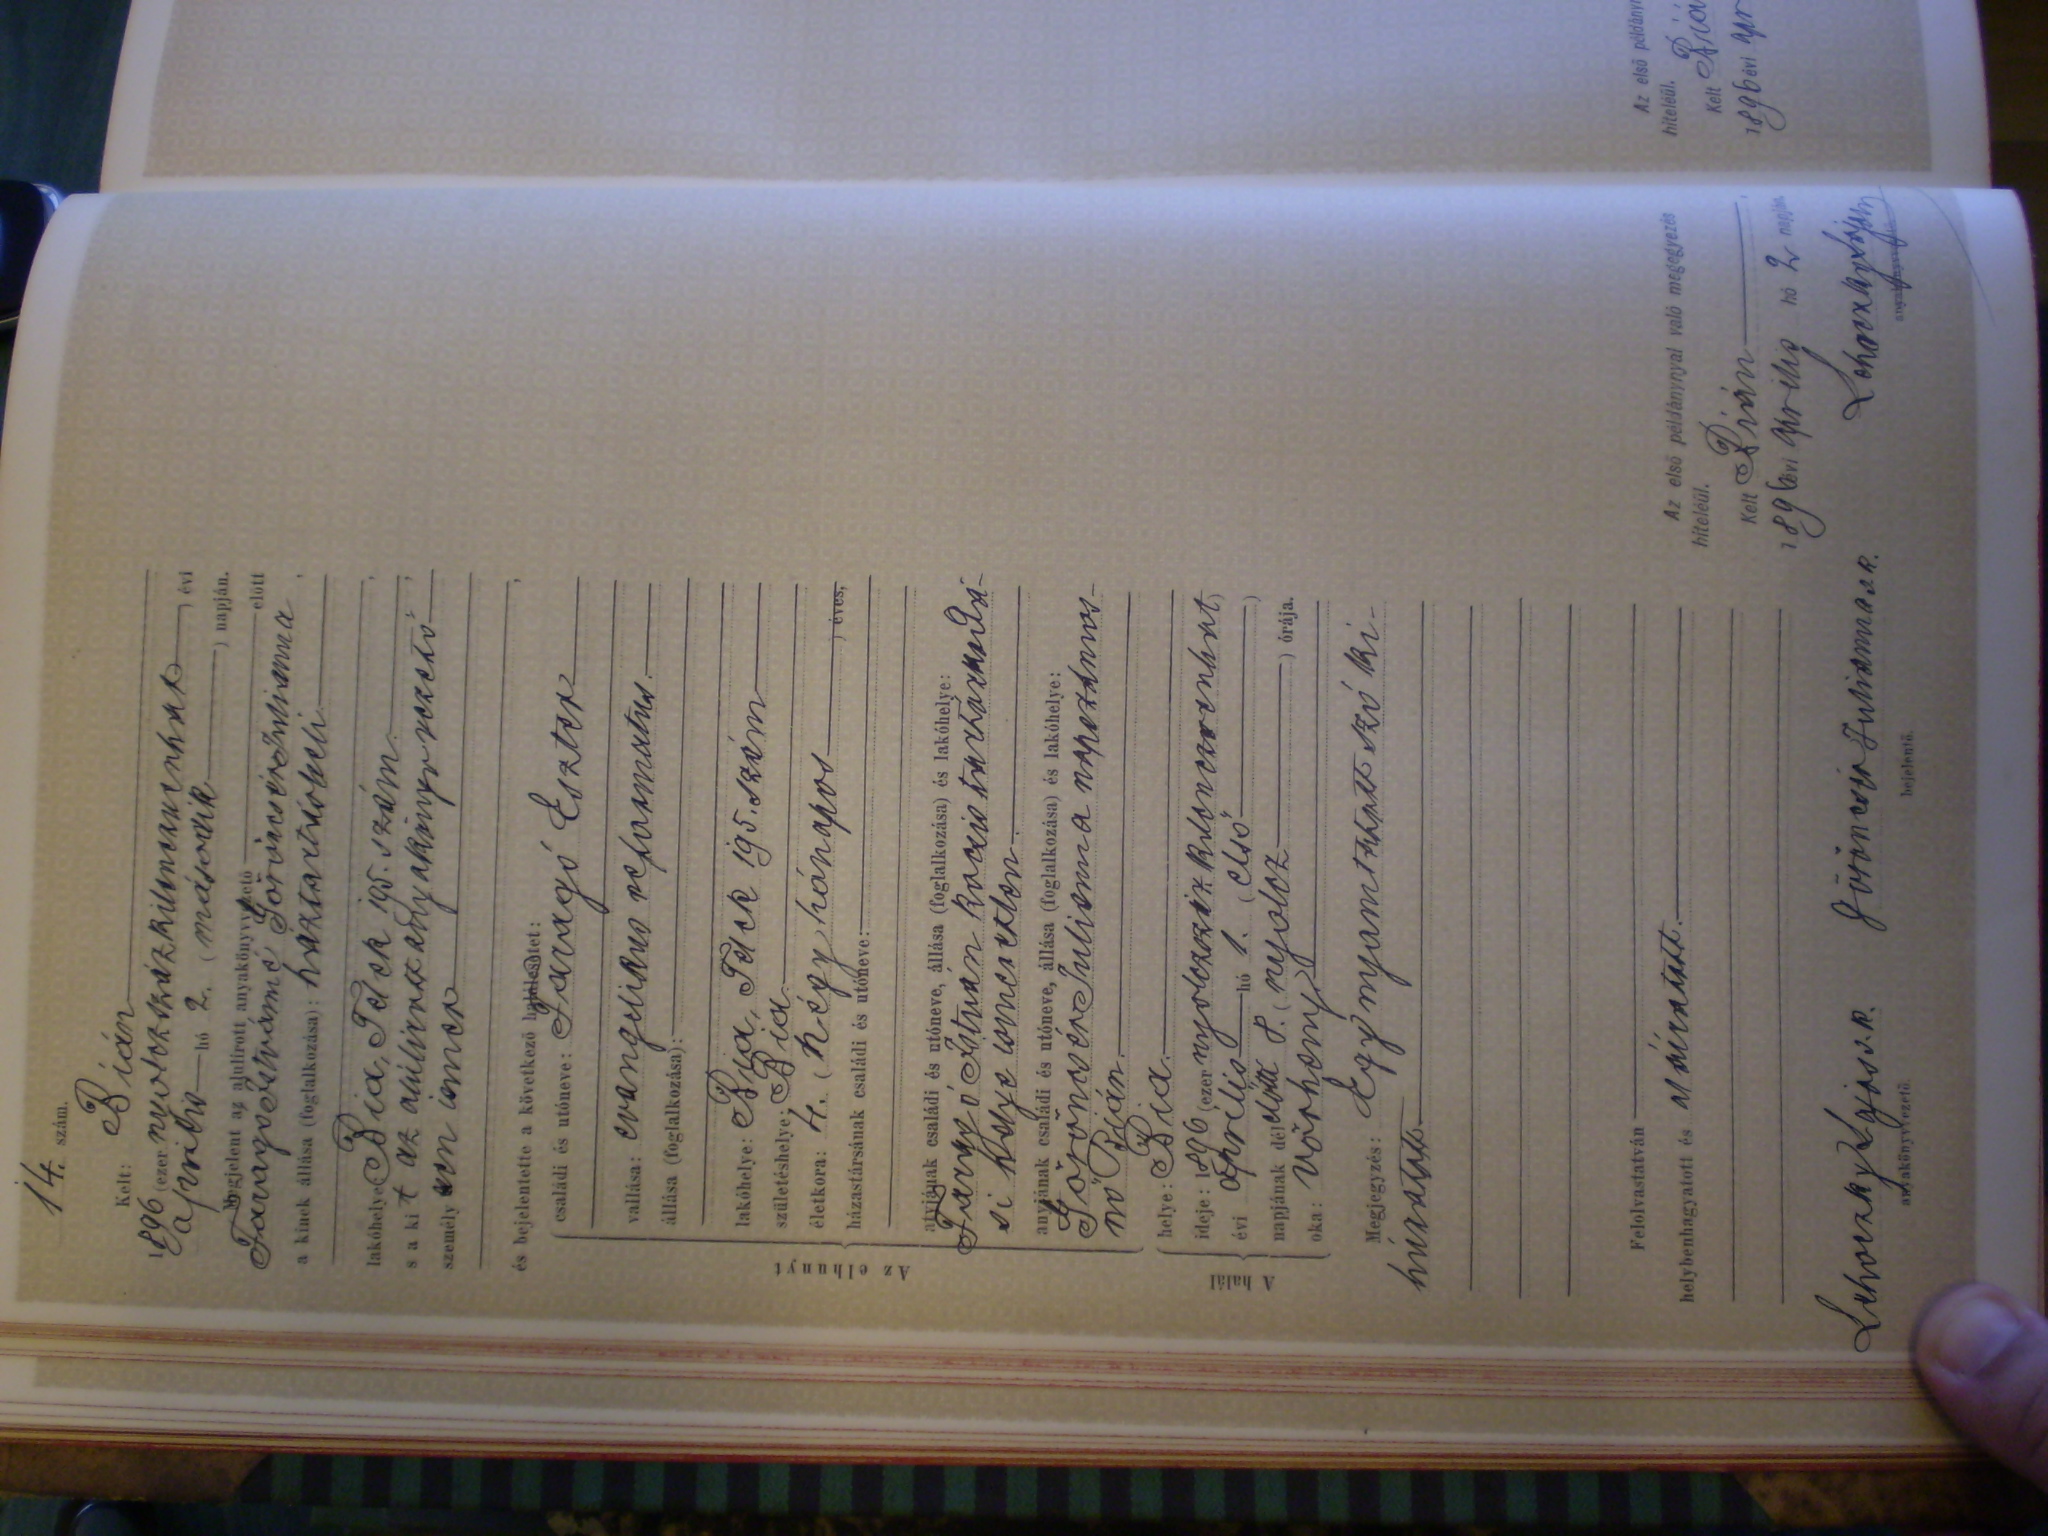 14. szám.
Kelt: Bián
1896 (ezer nyolczszázkilenczvenhat) évi
április hó 2. (második) napján.
Megjelent az alulirott anyakönyvvezető előtt
Faragó Istvánné Göröncsér Julianna,
a kinek állása (foglalkozása): háztartásbeli
lakóhelye Bia, Telek 195. szám,
s a kit az alulirott anyakönyvvezető
személyesen ismer,
és bejelentette a következő halálesetet:
Az elhunyt
családi és utóneve: Faragó Eszter
vallása: evangelikus reformatus.
állása (foglalkozása):
lakóhelye: Bia, Telek 195. szám
születéshelye: Bia.
életkora: 4. (négy hónapos) éves,
házastársának családi és utóneve:
atyjának családi és utóneve, állása (foglalkozása) és lakóhelye:
Faragó István
si helye ismeretlen.
anyjának családi és utóneve, állása (foglalkozása) és lakóhelye:
Göröncsér Julianna napszámos-
nő Bián.
A halál
helye: Bia.
ideje: 1896 (ezer nyolczszázkilenczvenhat)
évi április hó 1. (első)
napjának délelőtt 8. (nyolcz) órája.
oka: vörheny)
Megjegyzés: Egy nyomtatott szó ki-
huzatott.
Felolvastatván
helybenhagyatott és aláiratott.
anyakönyvvezető.
Göröncsér Julianna s. k.
bejelentő.
Az első példánynyal való megegyezés
hiteléül.
Kelt Bián,
1896 évi április hó 2 napján.
anyakönyvvezető.
Az első példányn
hiteléül.
Kelt Biá
1896 évi ápr